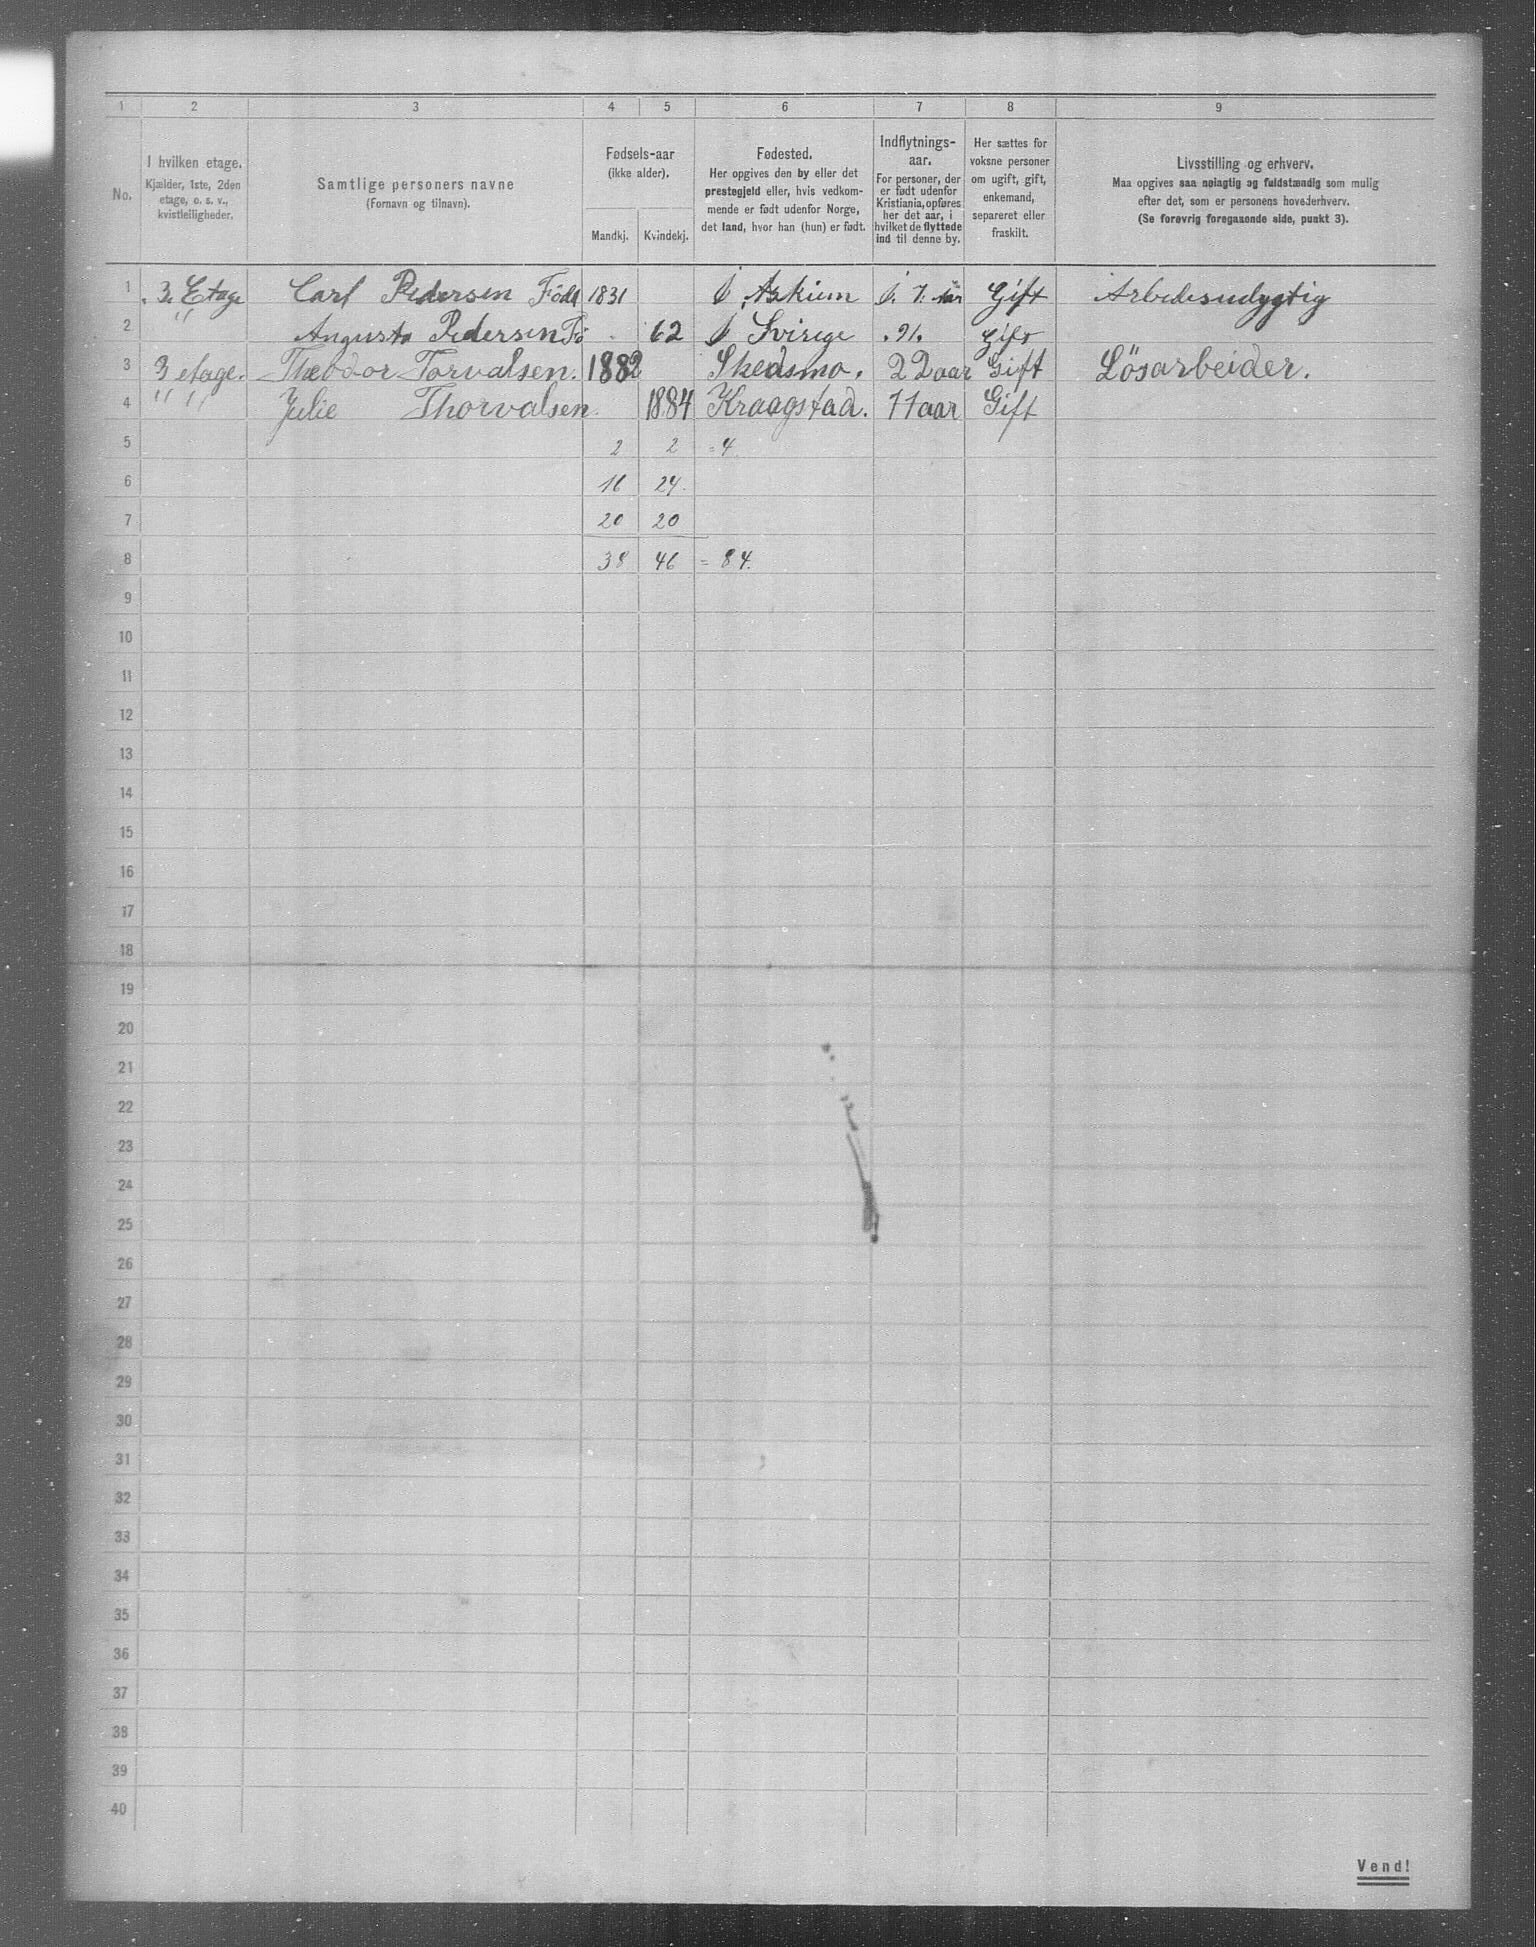 1 2 3 4 5 6 7 8 9
No.
I hvilken etage.
Kjælder, 1ste, 2den
etage, o. s. v.,
kvistleiligheder.
Samtlige personers navne
(Fornavn og tilnavn).
Fødsels-aar
(ikke alder).
Mandkj. Kvindekj.
Fødested.
Her opgives den by eller det
prestegjeld eller, hvis vedkom-
mende er født udenfor Norge,
det land, hvor han (hun) er født.
Indflytnings-
aar.
For personer, der
er født udenfor
Kristiania, opføres
her det aar, i
hvilket de flyttede
ind til denne by.
Her sættes for
voksne personer
om ugift, gift,
enkemand,
separeret eller
fraskilt.
Livsstilling og erhverv.
Maa opgives saa nøiagtig og fuldstændig som mulig
efter det, som er personens hovederhverv.
(Se forøvrig foregaaende side, punkt 3).
1 3. Etage Carl Pedersen Född 1831 I Askium I. 7. aar Gift Arbedesudygtig
2 " Augusta Pedersen Fö 62 I Svirige .91. Gift
3 3 etage. Theodor Torvalsen. 1882 Skedsmo. 22 aar Gift Lösarbeider.
4 " " Julie Thorvalsen. 1884 Kraagstad. 11 aar Gift
5 2 2 = 4
6 16 24
7 20 20
8 38 46 = 84.
9
10
11
12
13
14
15
16
17
18
19
20
21
22
23
24
25
26
27
28
29
30
31
32
33
34
35
36
37
38
39
40
Vend!